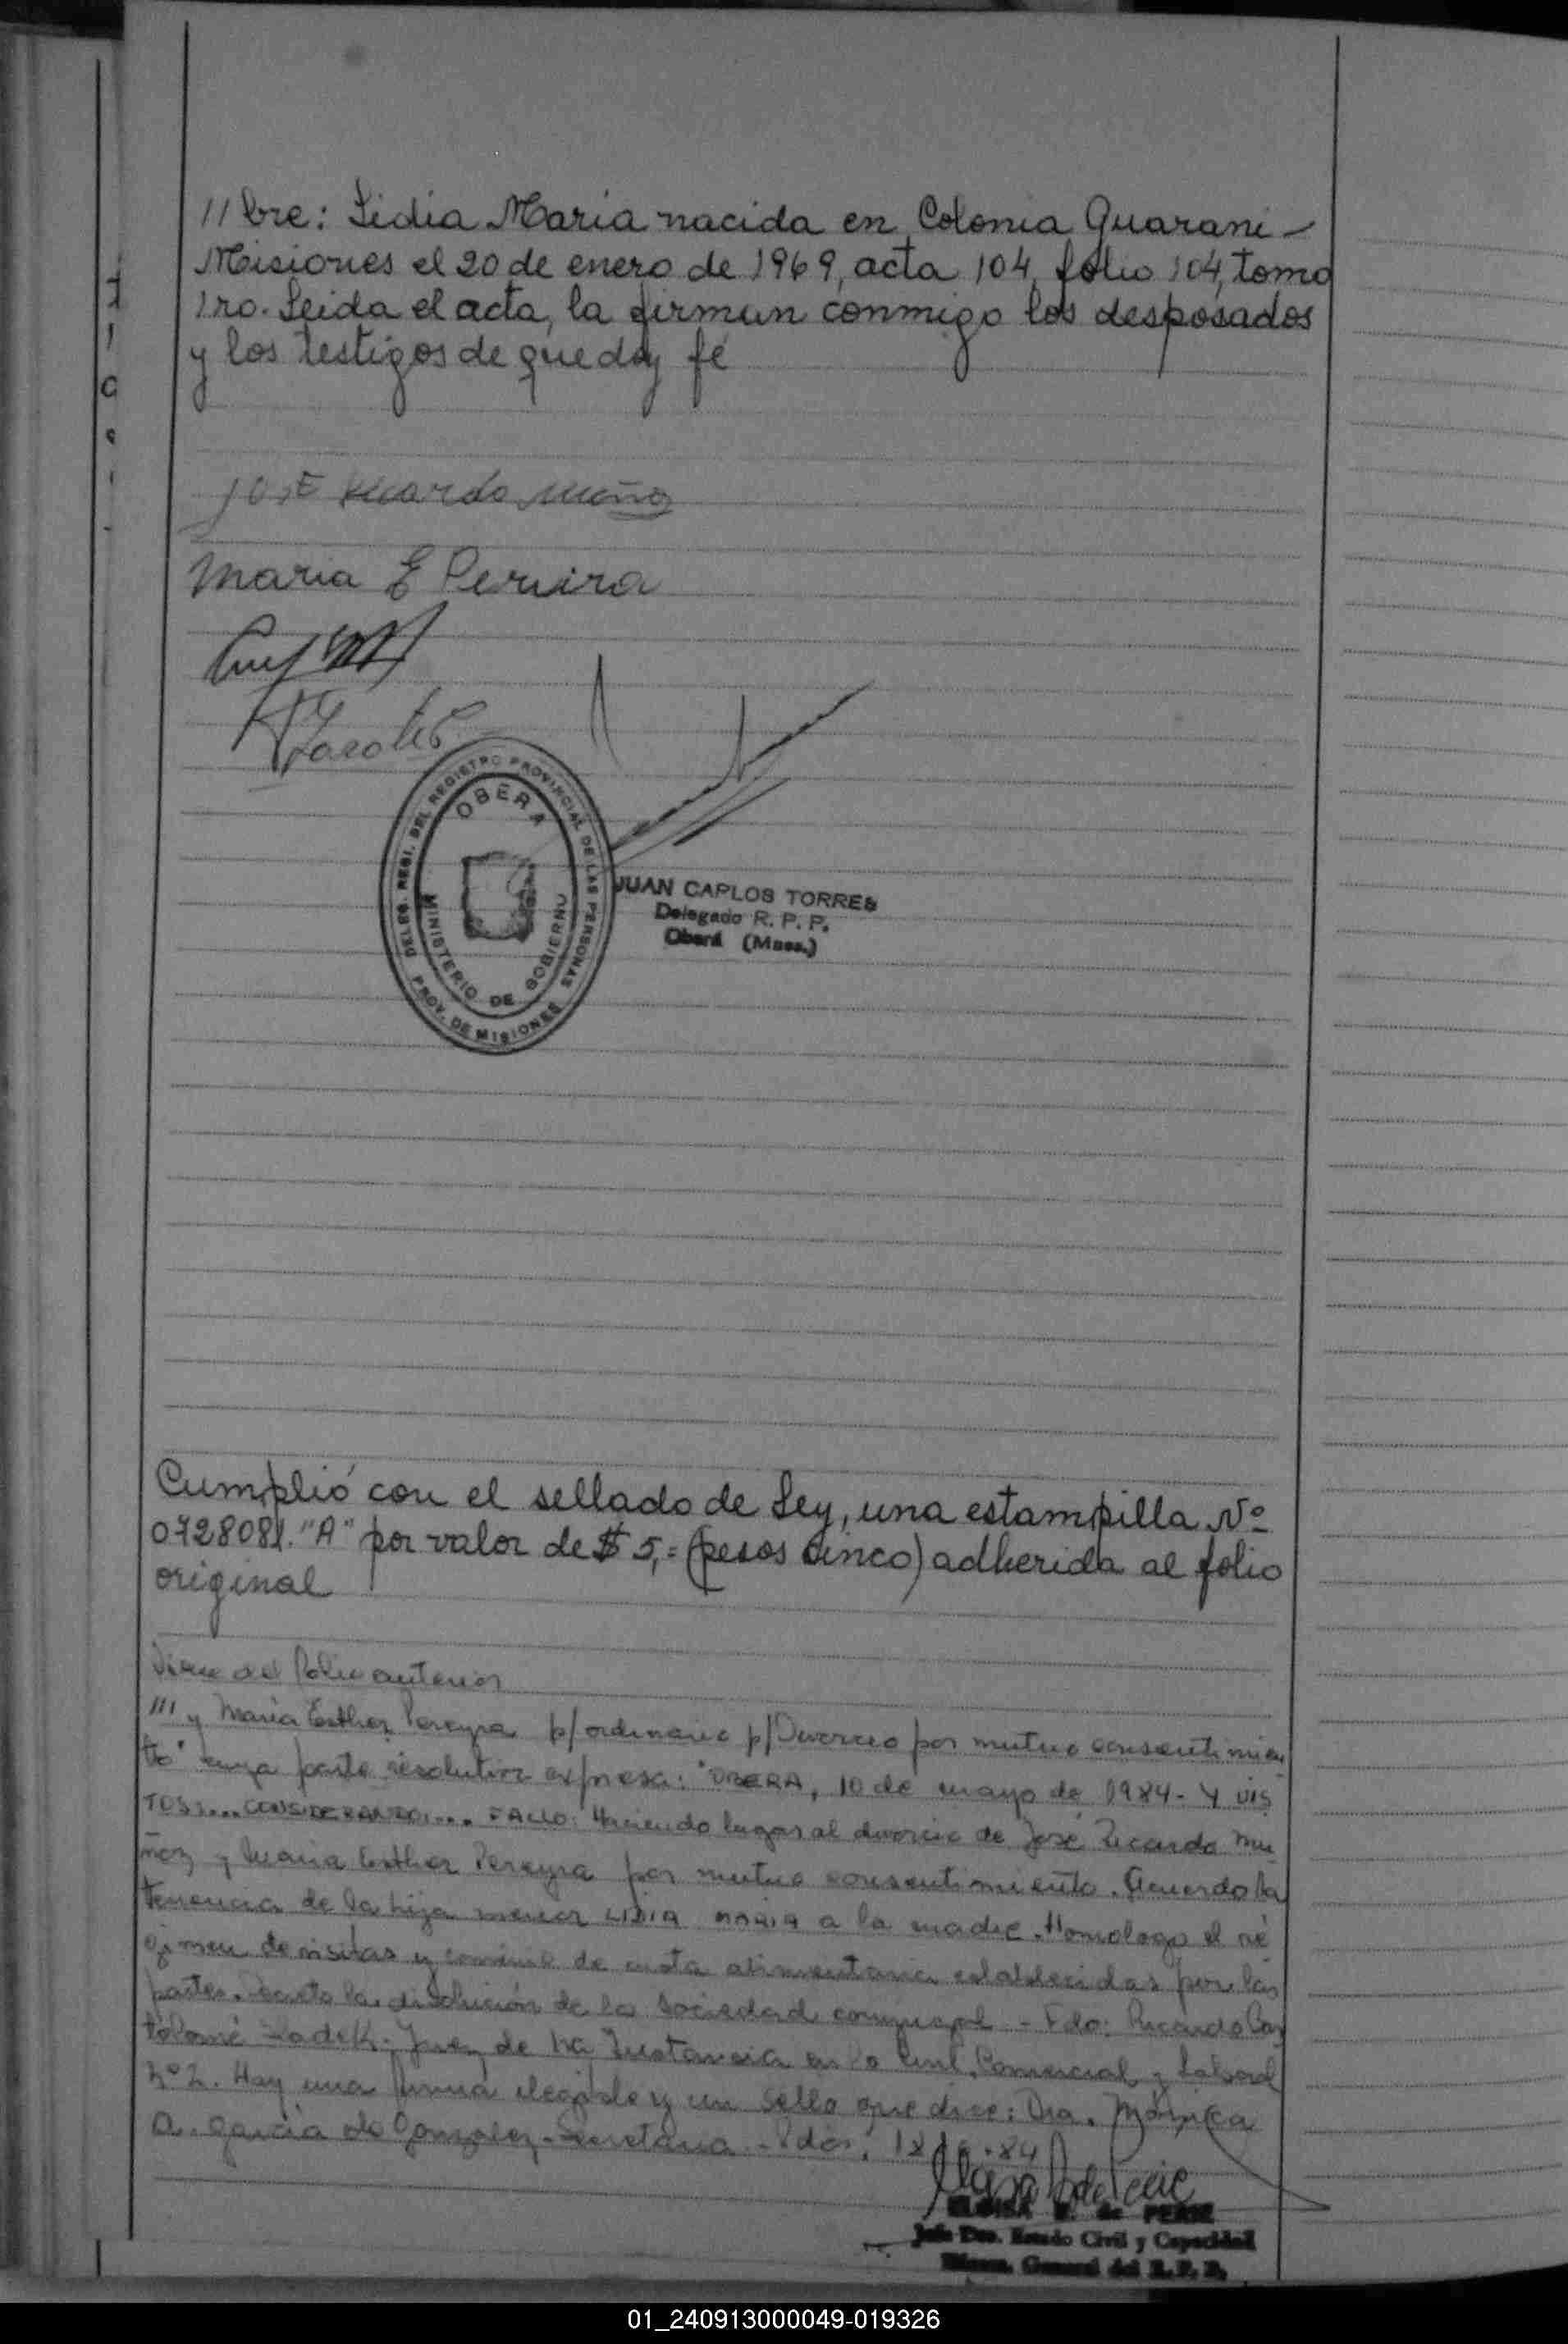 //bre: Lidia María nacida en Colonia Guaraní -
Misiones el 20 de enero de 1969, acta 104, folio 104, tomo
1ro. Leida el acta, la firman conmigo los desposados
y los testigos de que doy fé
José Ricardo Muñoz
Maria E Pereira
DELEG. REGI. DEL REGISTRO PROVINCIAL DE LAS PERSONAS
OBERA
MINISTERIO DE GOBIERNO
PROV. DE MISIONES
JUAN CARLOS TORRES
Delegado R. P. P.
Oberá (Mnes.)
Cumplió con el sellado de Ley, una estampilla Nº
0728081. "A" por valor de $ 5,= (pesos cinco) adherida al folio
original
Viene del folio anterior
/// y María Esther Pereyra p/ordinario p/Divorcio por mutuo consentimien
to" cuya parte resolutiva expresa: "OBERA, 10 de mayo de 1984. Y VIS
TOS:... CONSIDERANDO:... FALLO: Haciendo lugar al divorcio de José Ricardo Mu
ñoz y María Esther Pereyra por mutuo consentimiento. Acuerdo la
tenencia de la hija menor LIDIA MARIA a la madre. Homologo el ré
gimen de visitas y convenio de cuota alimentaria establecidas por las
partes. Decreto la disolución de la sociedad conyugal - Fdo: Ricardo Bar
tolomé Juez de 1ra Instancia en lo Civil, Comercial y Laboral
Nº 2. Hay una firma ilegible y un sello que dice: Dra. Mónica
A. García de Gonzalez - Secretaria - Pdas,
ELOISA de
Jefe Dto. Estado Civil y Capacidad
General del R. P. P.
01_240913000049-019326